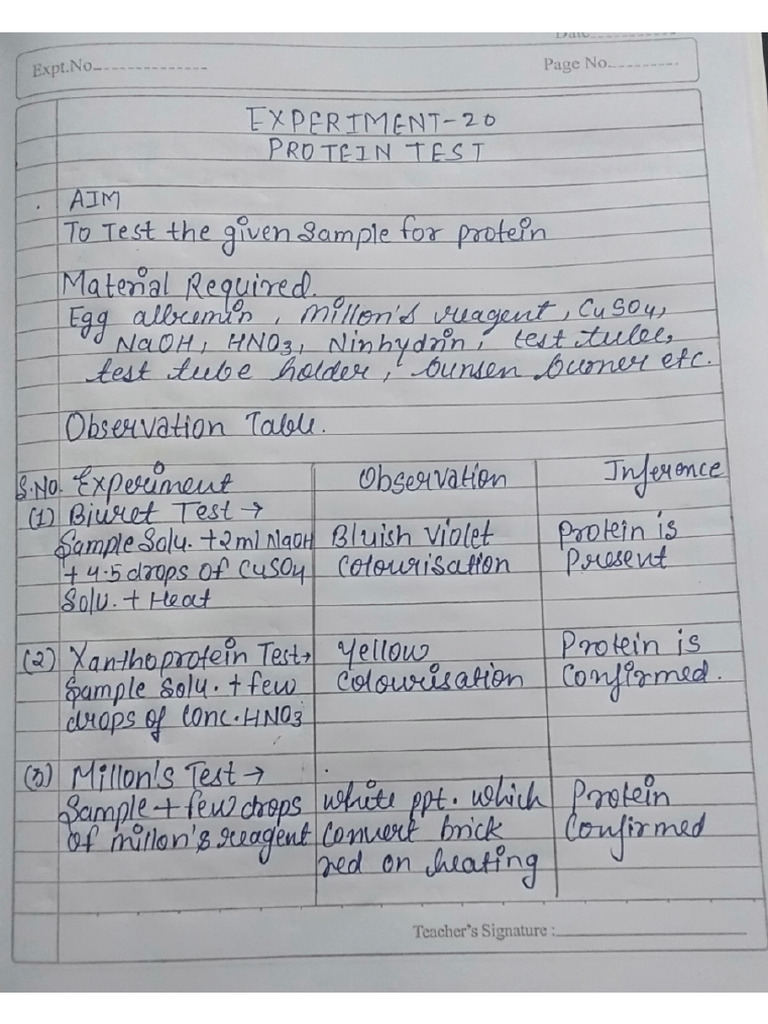 Expt.No.
Page No.
EXPERIMENT-20
PROTEIN TEST
AIM
To Test the given Sample for protein
Material Required.
Egg albumin, millon's reagent, CuSO4,
NaOH, HNO3, Ninhydrin, test tube,
test tube holder, bunsen burner etc.
Observation Table.
S.No. Experiment Observation Inference
(1) Biuret Test →
Sample Solu. + 2ml NaOH Bluish Violet Protein is
+ 4-5 drops of CuSO4 Colourisation Present
Solu. + Heat
(2) Xanthoprotein Test→ Yellow Protein is
Sample Solu. + few Colourisation Confirmed.
drops of conc. HNO3
(3) Millon's Test →
Sample + few drops white ppt. which Protein
of millon's reagent convert brick Confirmed
red on heating
Teacher's Signature :